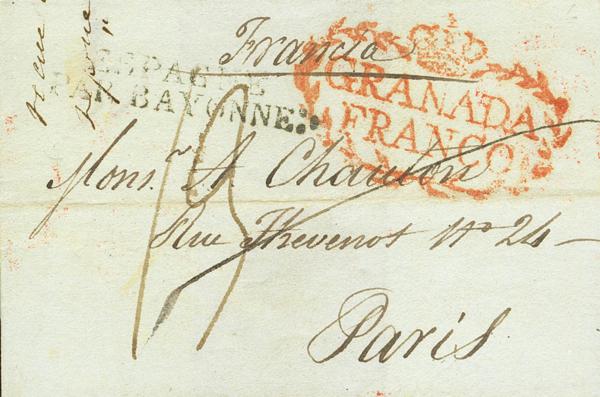 Francia
ESPAGNE
PAR BAYONNE
GRANADA
FRANCO
19
Mons.r A Chauton
Rue Thevenot No 24 —
Paris